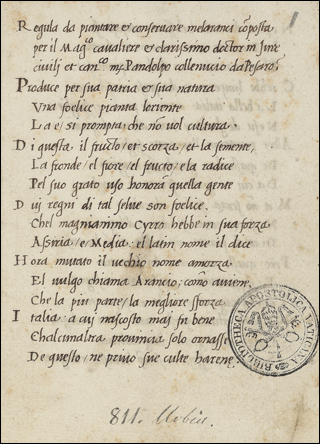 1
Regula da piantare & conseruare melaranci cõposta
per il Mag.co caualiere & clarissimo doctor in Jure
ciuili et can.co mx Pandolpo collenucio da Pesaro:
Produce per sua patria & sua natura
Vna foelice pianta loriente
La e, si prompta, che nõ vol cultura.
Di questa, il fructo, et scorza, et la semente,
La fronde, el fiore, el fructo, e la radice
Pel suo grato uso honora quella gente
Duj regni di tal selue son foelice.
Chel magnianimo Cyrro hebbe in sua forza
Assiria, e Media: el latin nome il dice
Hora mutato il uechio nome amorza
El uulgo chiama Arancio, como auiene,
Che la piu parte, la megliore sforza
Italia: a cuj nascosto maj fu bene
Chalcunaltra prouincia solo ornasse
De questo, ne priuo sue culte harene,
BIBLIOTHECA APOSTOLICA VATICANA
811. Urbin.